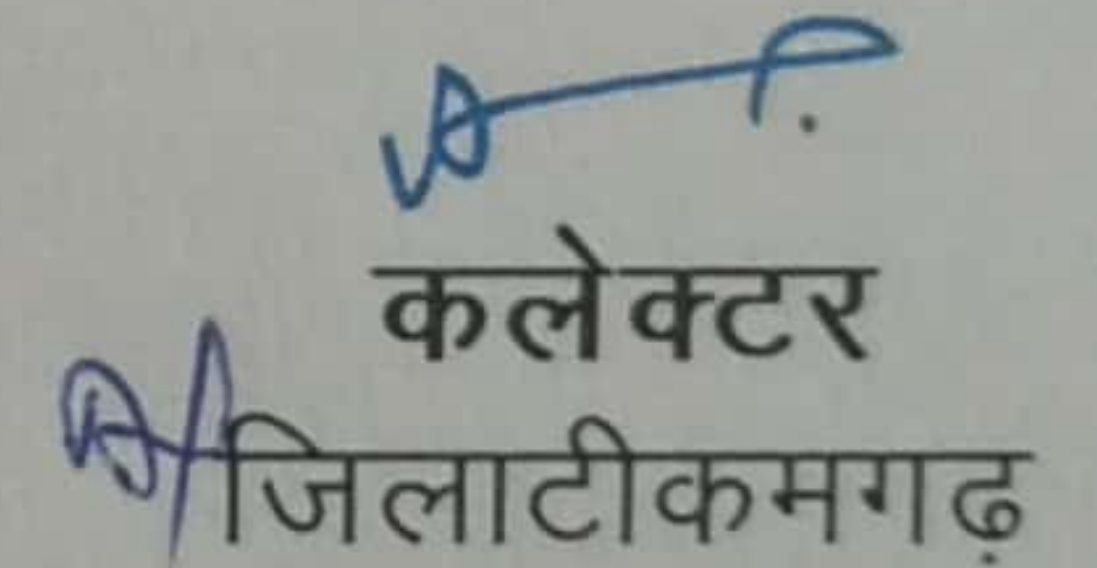 कलेक्टर
जिलाटीकमगढ़